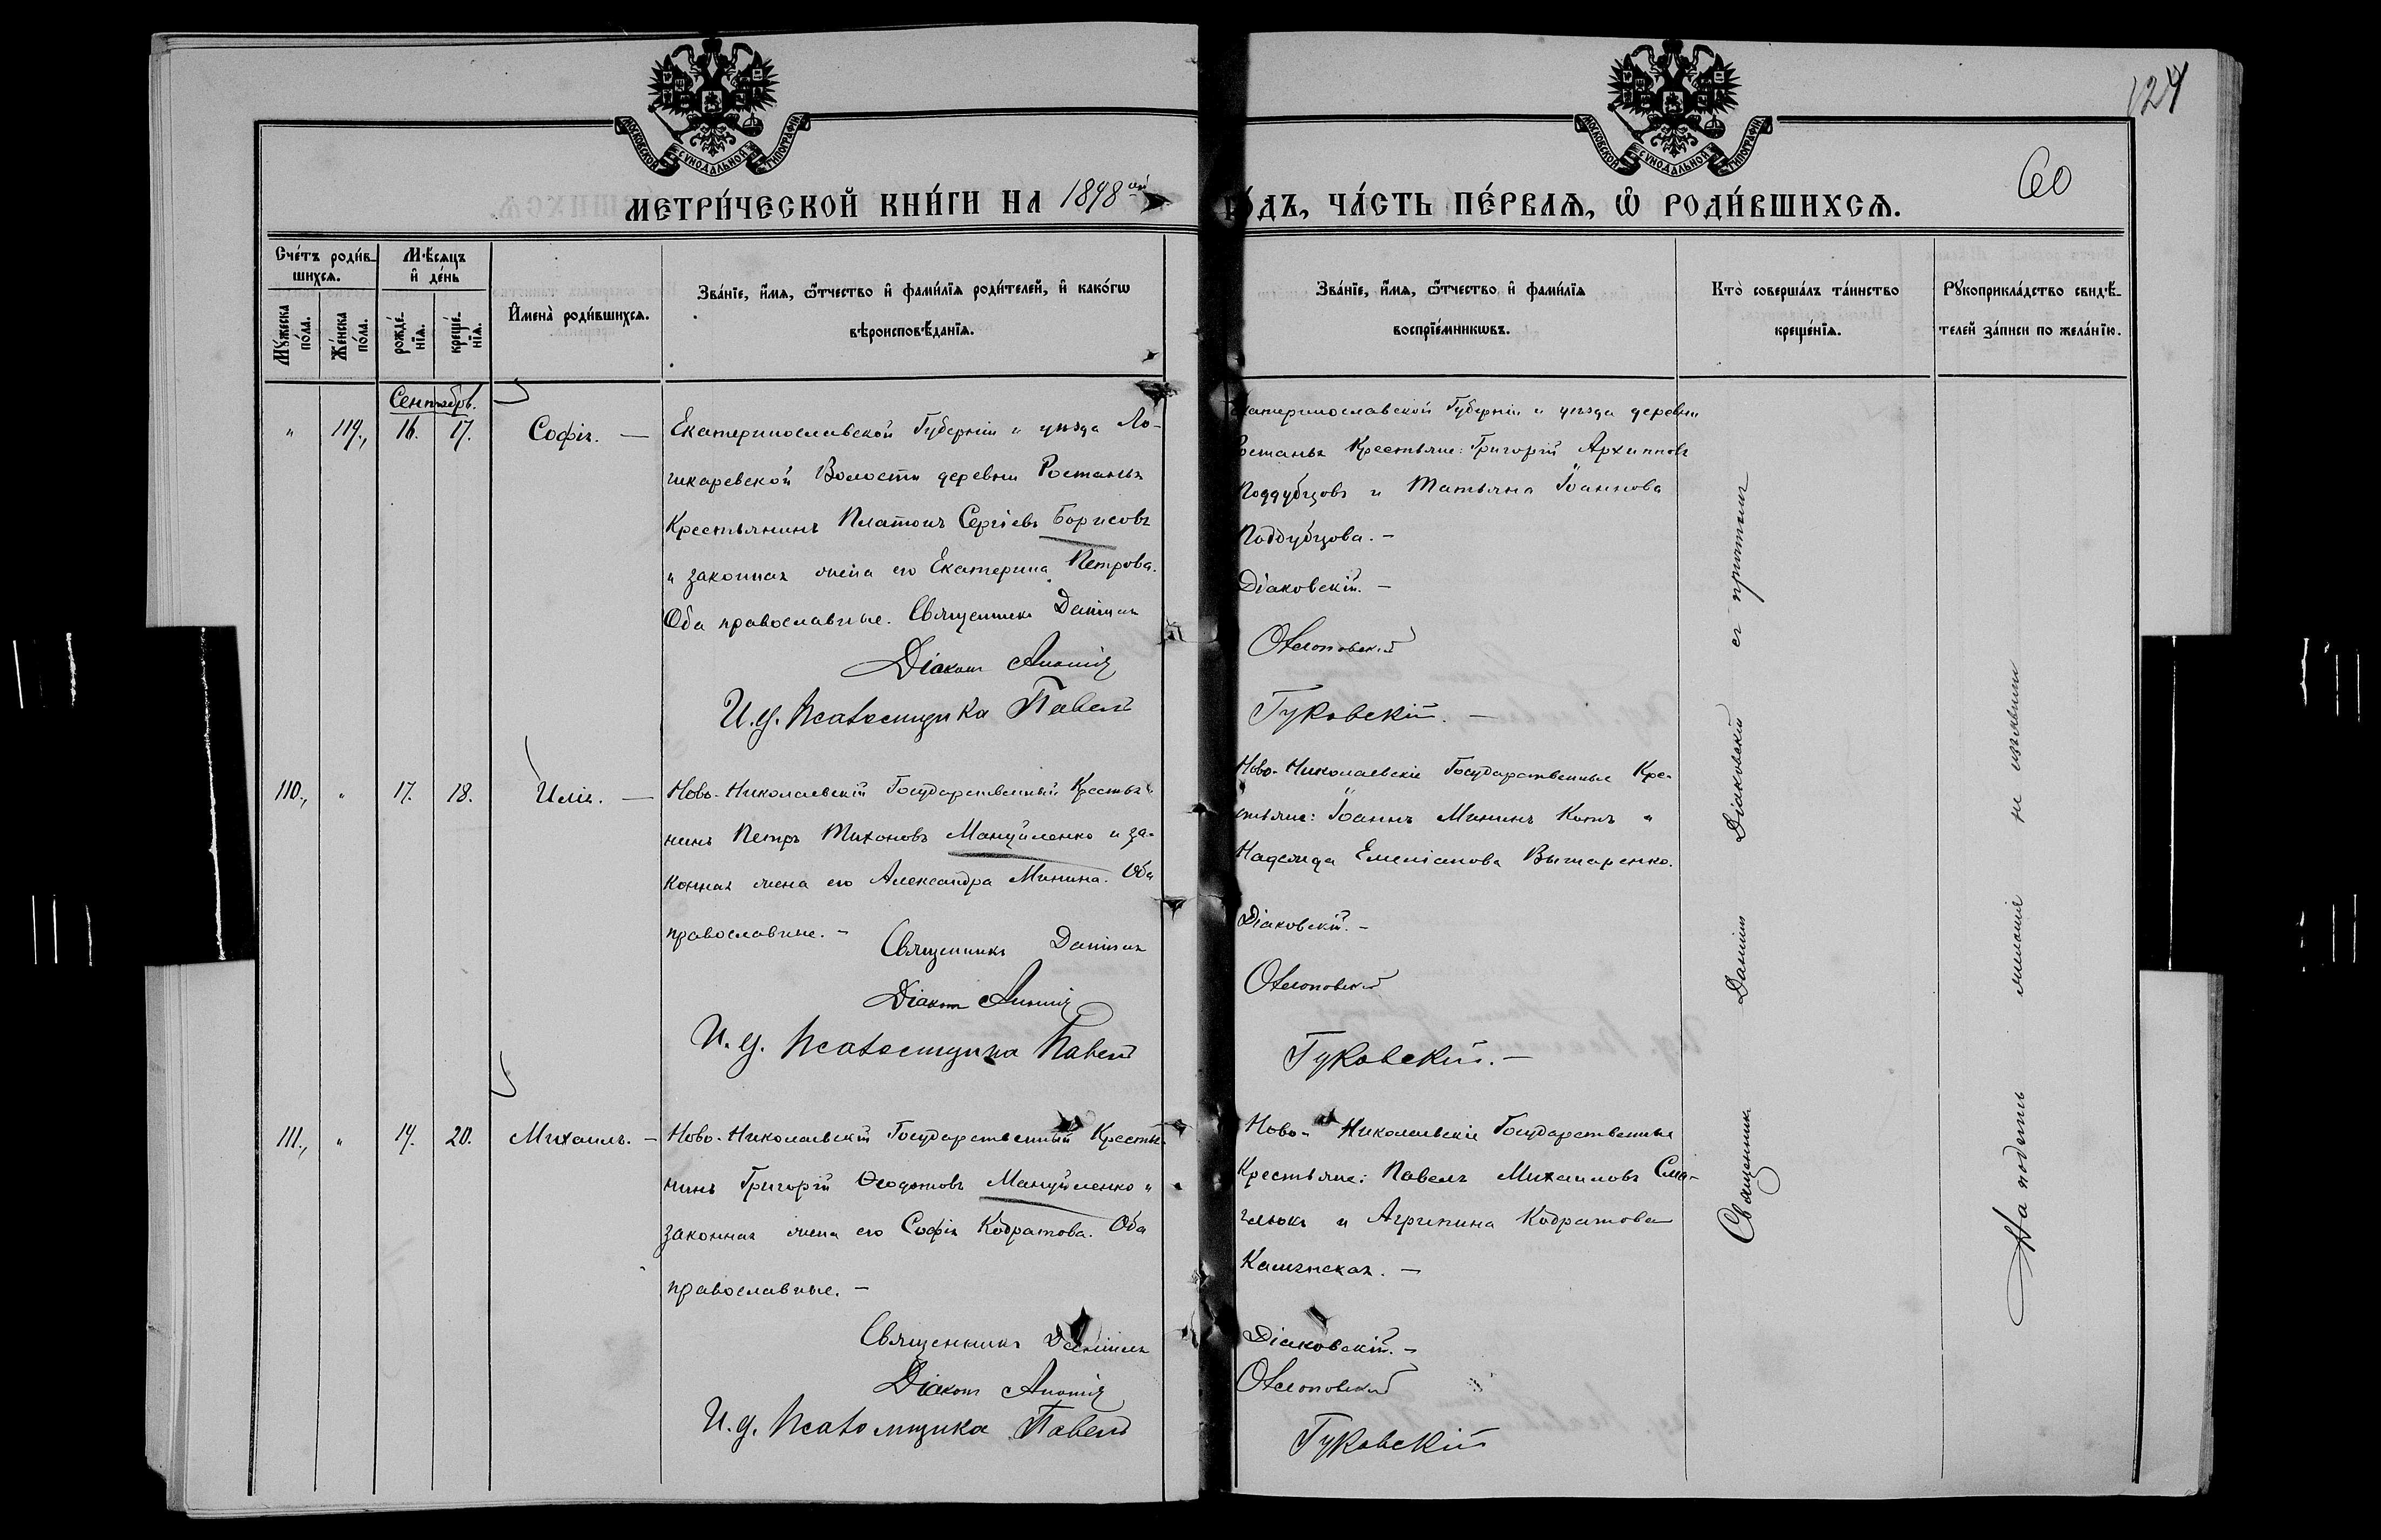 124
60
МОСКОВСКОЙ СѴНОДАЛЬНОЙ ТИПОГРАФІИ
МОСКОВСКОЙ СѴНОДАЛЬНОЙ ТИПОГРАФІИ
МЕТРИ́ЧЕСКОЙ КНИ́ГИ НА 1898ой ГО́ДЪ, ЧА́СТЬ ПЕ́РВАѦ, Ѽ РОДИ́ВШИХСѦ.
Сче́тъ роди́в-
шихсѧ.
Мꙋ́жеска
по́ла.
Же́нска
по́ла.
М·ѣ́сѧцъ
и҆ де́нь
рожде́-
нїѧ.
креще́-
нїѧ.
И҆мена̀ роди́вшихсѧ.
Зва́нїе, и҆́мѧ, ѻ҆́тчество и҆ фами́лїѧ роди́телей, и҆ како́гѡ
вѣроисповѣ́данїѧ.
Зва́нїе, и҆́мѧ, ѻ҆́тчество и҆ фами́лїѧ
воспрїе́мникѡвъ.
Кто̀ соверша́лъ та́инство
креще́нїѧ.
Рꙋкоприкла́дство свидѣ́-
телей за́писи по жела́нїю.
Сентябрь.
" 119., 16. 17. Софія. —
Екатеринославской Губерніи и уѣзда Ло-
шкаревской Волости деревни Ростанья
Крестьянинъ Платонъ Сергіевъ Борисовъ
и законная жена его Екатерина Петрова.
Оба православные. Священникъ Даніилъ
Діаконъ
И. д. Псаломщика Павелъ
Екатеринославской Губерніи и уѣзда деревни
Ростанья Крестьяне: Григорій Архиповъ
Поддубцовъ и Татьяна Іоаннова
Поддубцова. —
Діаковскій. —
Гуковскій. —
110., " 17. 18. Илія. —
Ново-Николаевскій Государственный Крестья-
нинъ Петръ Тихоновъ Мануйленко и за-
конная жена его Александра Минина. Оба
православные. —
Священникъ Даніилъ
Діаконъ
И. д. Псаломщика Павелъ
Ново-Николаевскіе Государственные Кре-
стьяне: Іоаннъ Мининъ Котъ и
Надежда Емеліанова
Діаковскій. —
Гуковскій. —
111., " 19. 20. Михаилъ. —
Ново-Николаевскій Государственный Крестья-
нинъ Григорій Ѳеодотовъ Мануйленко и
законная жена его Софія Кодратова. Оба
православные. —
Священникъ Даніилъ
Діаконъ
И. д. Псаломщика Павелъ
Ново-Николаевскіе Государственные
Крестьяне: Павелъ Михаиловъ
и Агрипина Кодратова
Каминская. —
Діаковскій. —
Гуковскій
Священникъ Даніилъ Діаковскій съ причтомъ
На подпись желанія не изъявили